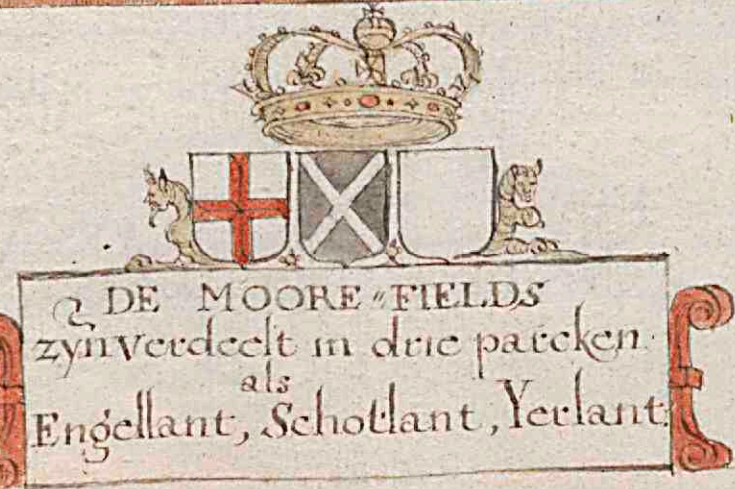 DE MOORE "FIELDS
zynverdeelt in drie parcken
als
Engellant, Schotlant, Yerlant